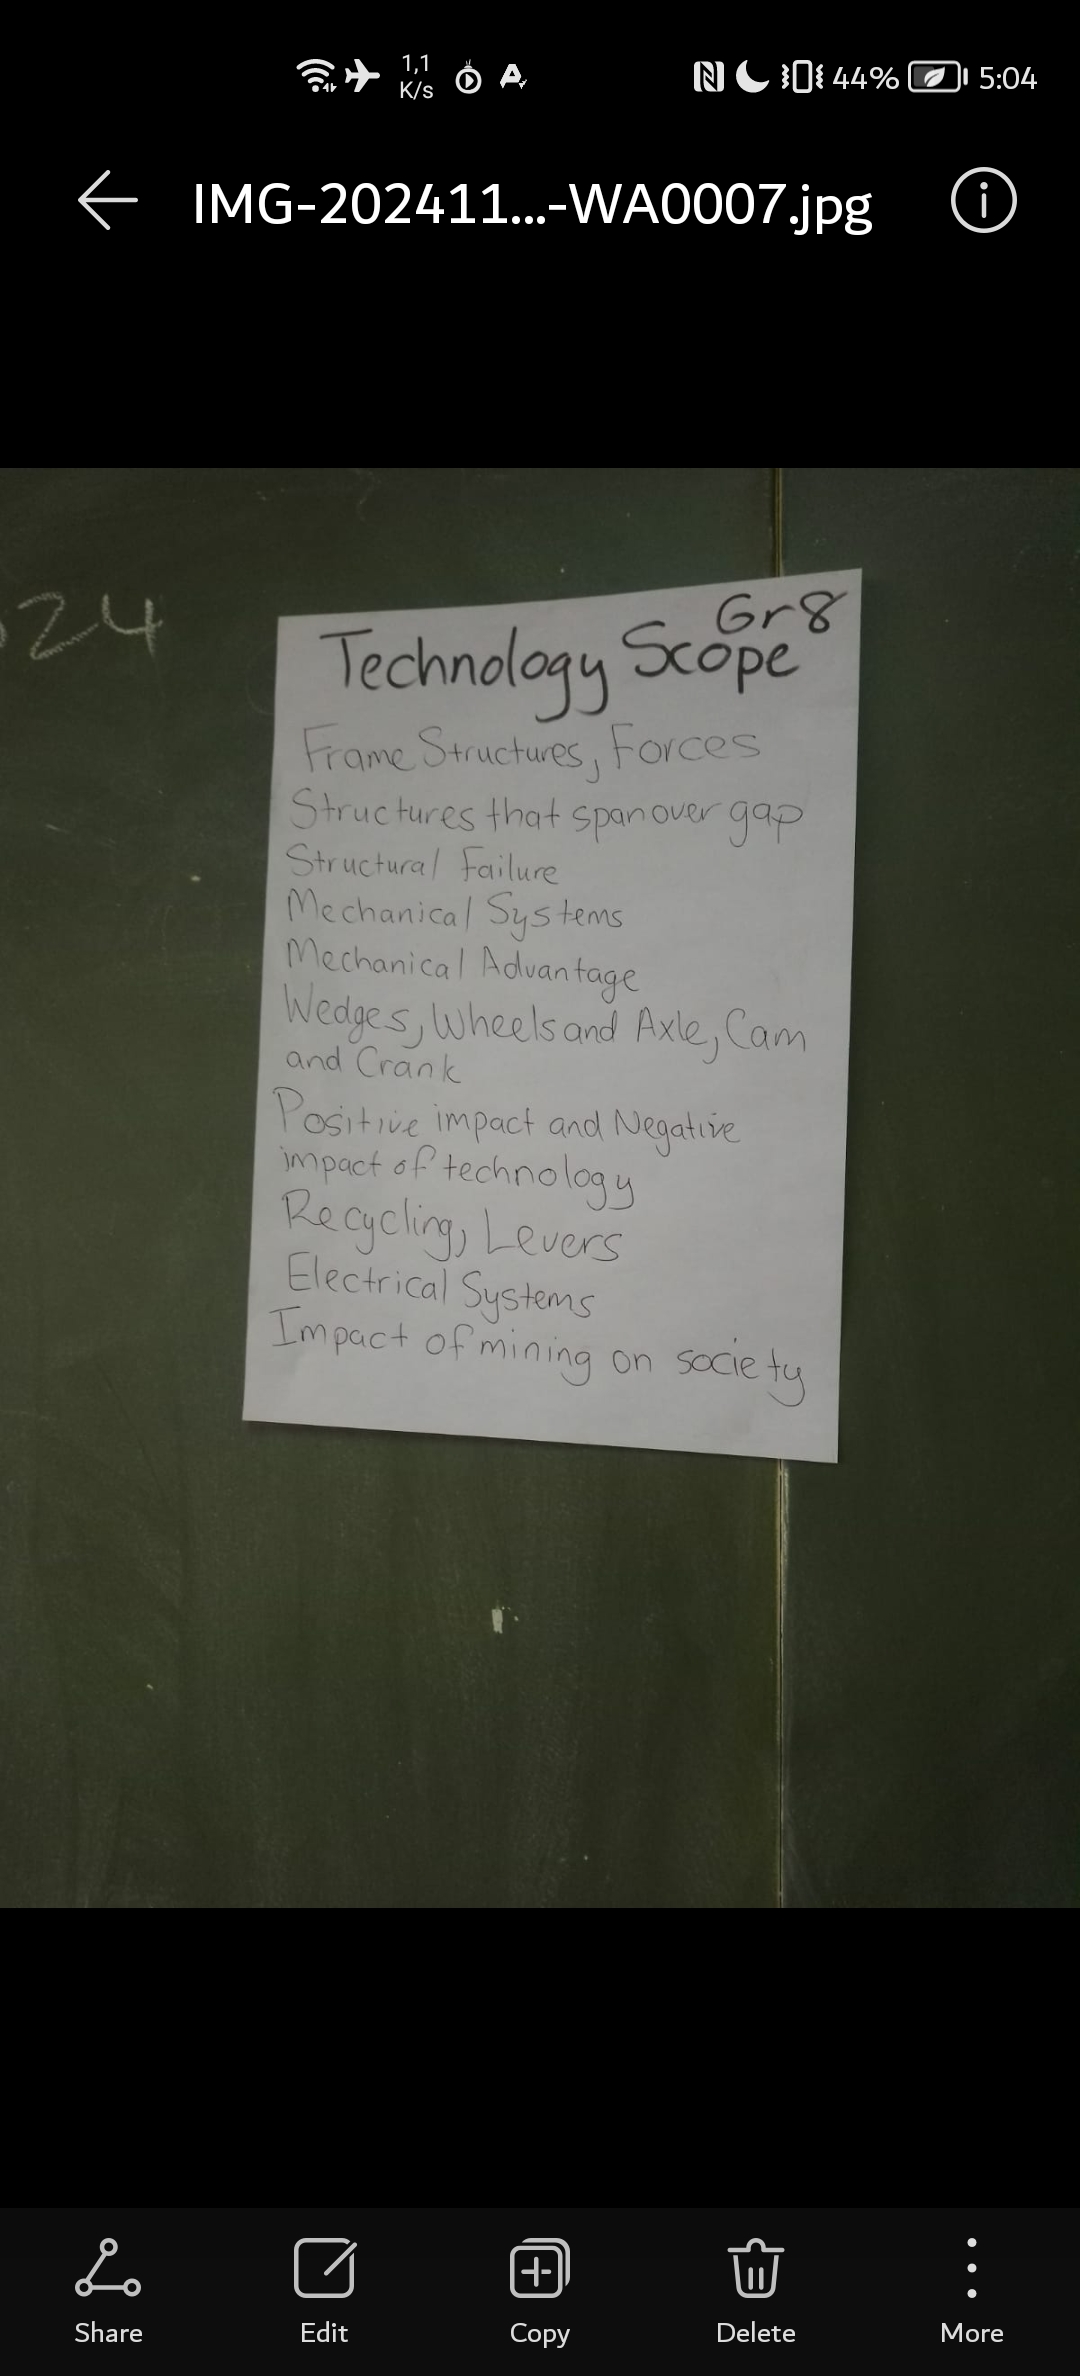 1,1
K/s
44%
5:04
IMG-202411...-WA0007.jpg
24
Gr8
Technology Scope
Frame Structures, Forces
Structures that span over gap
Structural Failure
Mechanical Systems
Mechanical Advantage
Wedges, Wheels and Axle, Cam
and Crank
Positive impact and Negative
impact of technology
Recycling, Levers
Electrical Systems
Impact of mining on society
Share
Edit
Copy
Delete
More